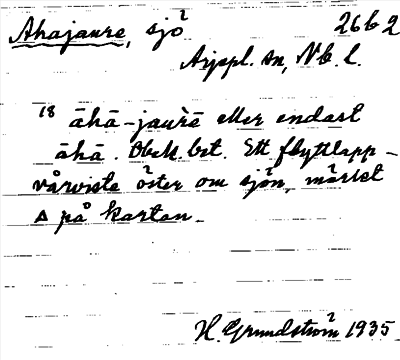 Ahajaure, sjö 26 b 2
Arjepl. sn, Nb. l.
18 āhā-jaurē eller endast
āhā. Obek. bet. Ett flyttlapp-
vårviste öster om sjön, märkt
∆ på kartan.
H. Grundström 1935